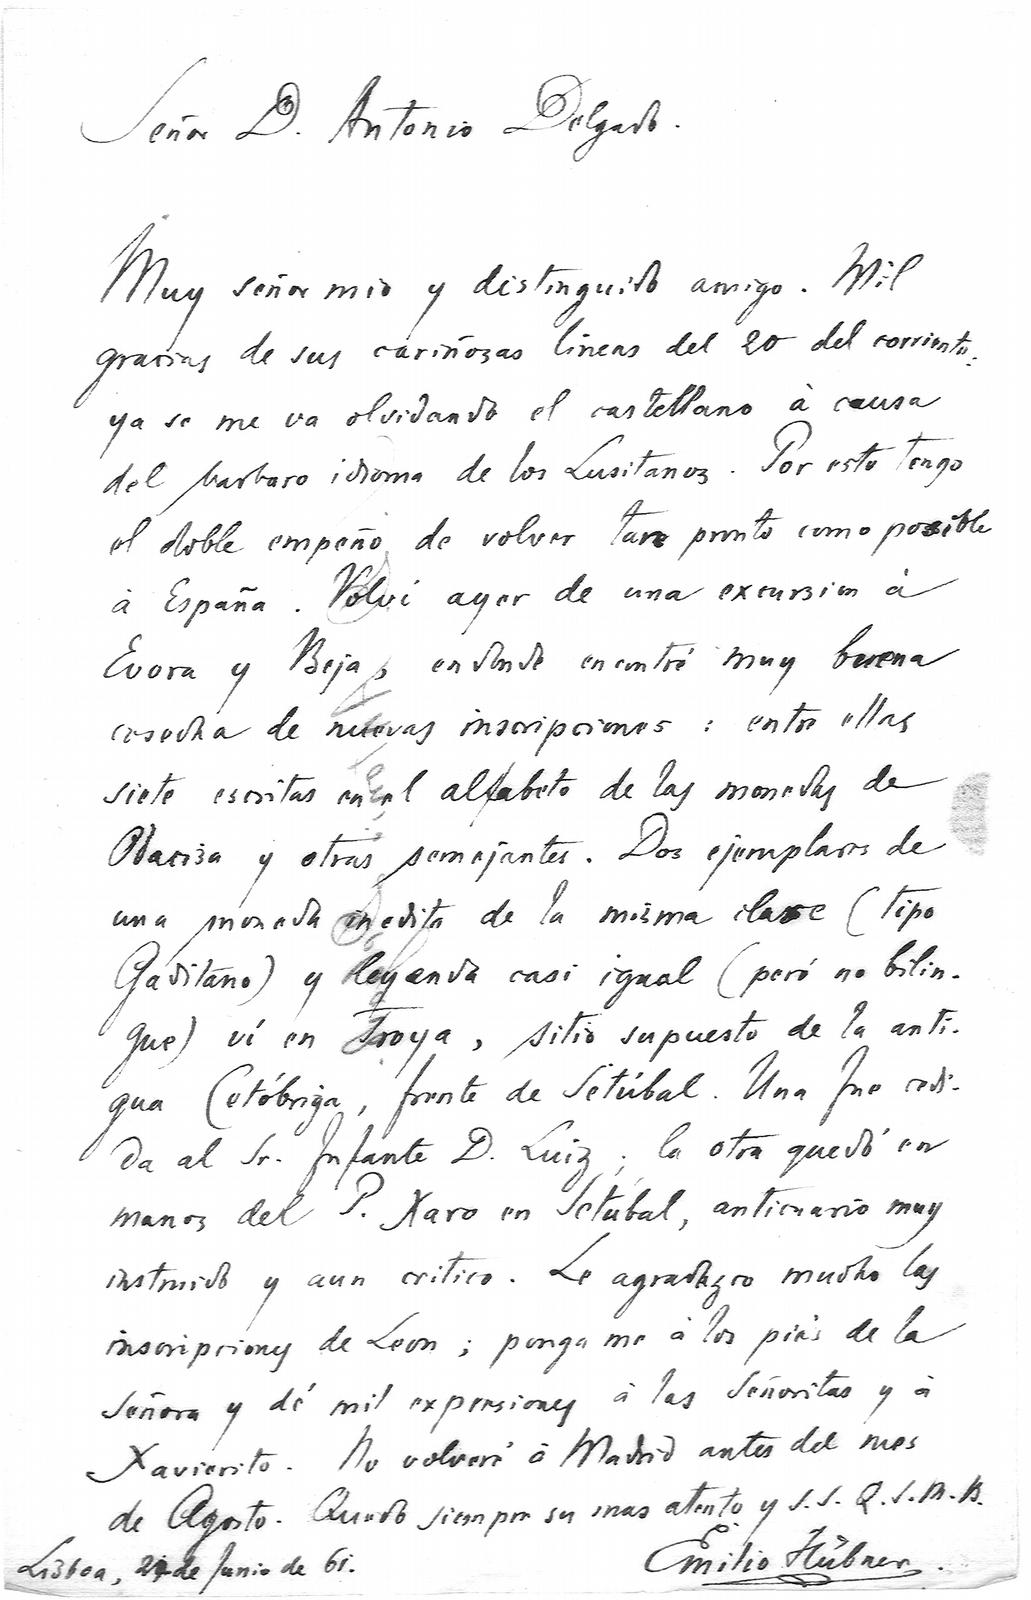 Señor D. Antonio Delgado.
Muy señor mio y distinguido amigo. Mil
gracias de sus cariñozas lineas del 20 del corriente:
ya se me va olvidando el castellano à causa
del barbaro idioma de los Lusitanos. Por esto tengo
el doble empeño de volver tan pronto como posible
à España. Volví ayer de una excursion à
Evora y Beja, en donde encontré muy buena
cosecha de nuevas inscripciones: entre ellas
siete escritas en el alfabeto de las monedas de
y otras semejantes. Dos ejemplares de
una moneda inedita de la misma clase (tipo
Gaditano) y leyenda casi igual (peró no bilin-
gue) ví en Troya, sitio supuesto de la anti-
gua Cetóbriga, frente de Setúbal. Una fue cedi-
da al Sr. Infante D. Luiz; la otra quedó en
manos del P. Xaro en Setúbal, anticuario muy
instruido y aun critico. Le agradezco mucho las
inscripciones de Leon; ponga me à los piés de la
Señora y dé mil expresiones à las Señoritas y à
Xavierito. No volveré à Madrid antes del mes
de Agosto. Quedo siempre su mas atento y S. S. Q. S. M. B.
Lisboa, de Junio de 61.
Emilio Hübner.